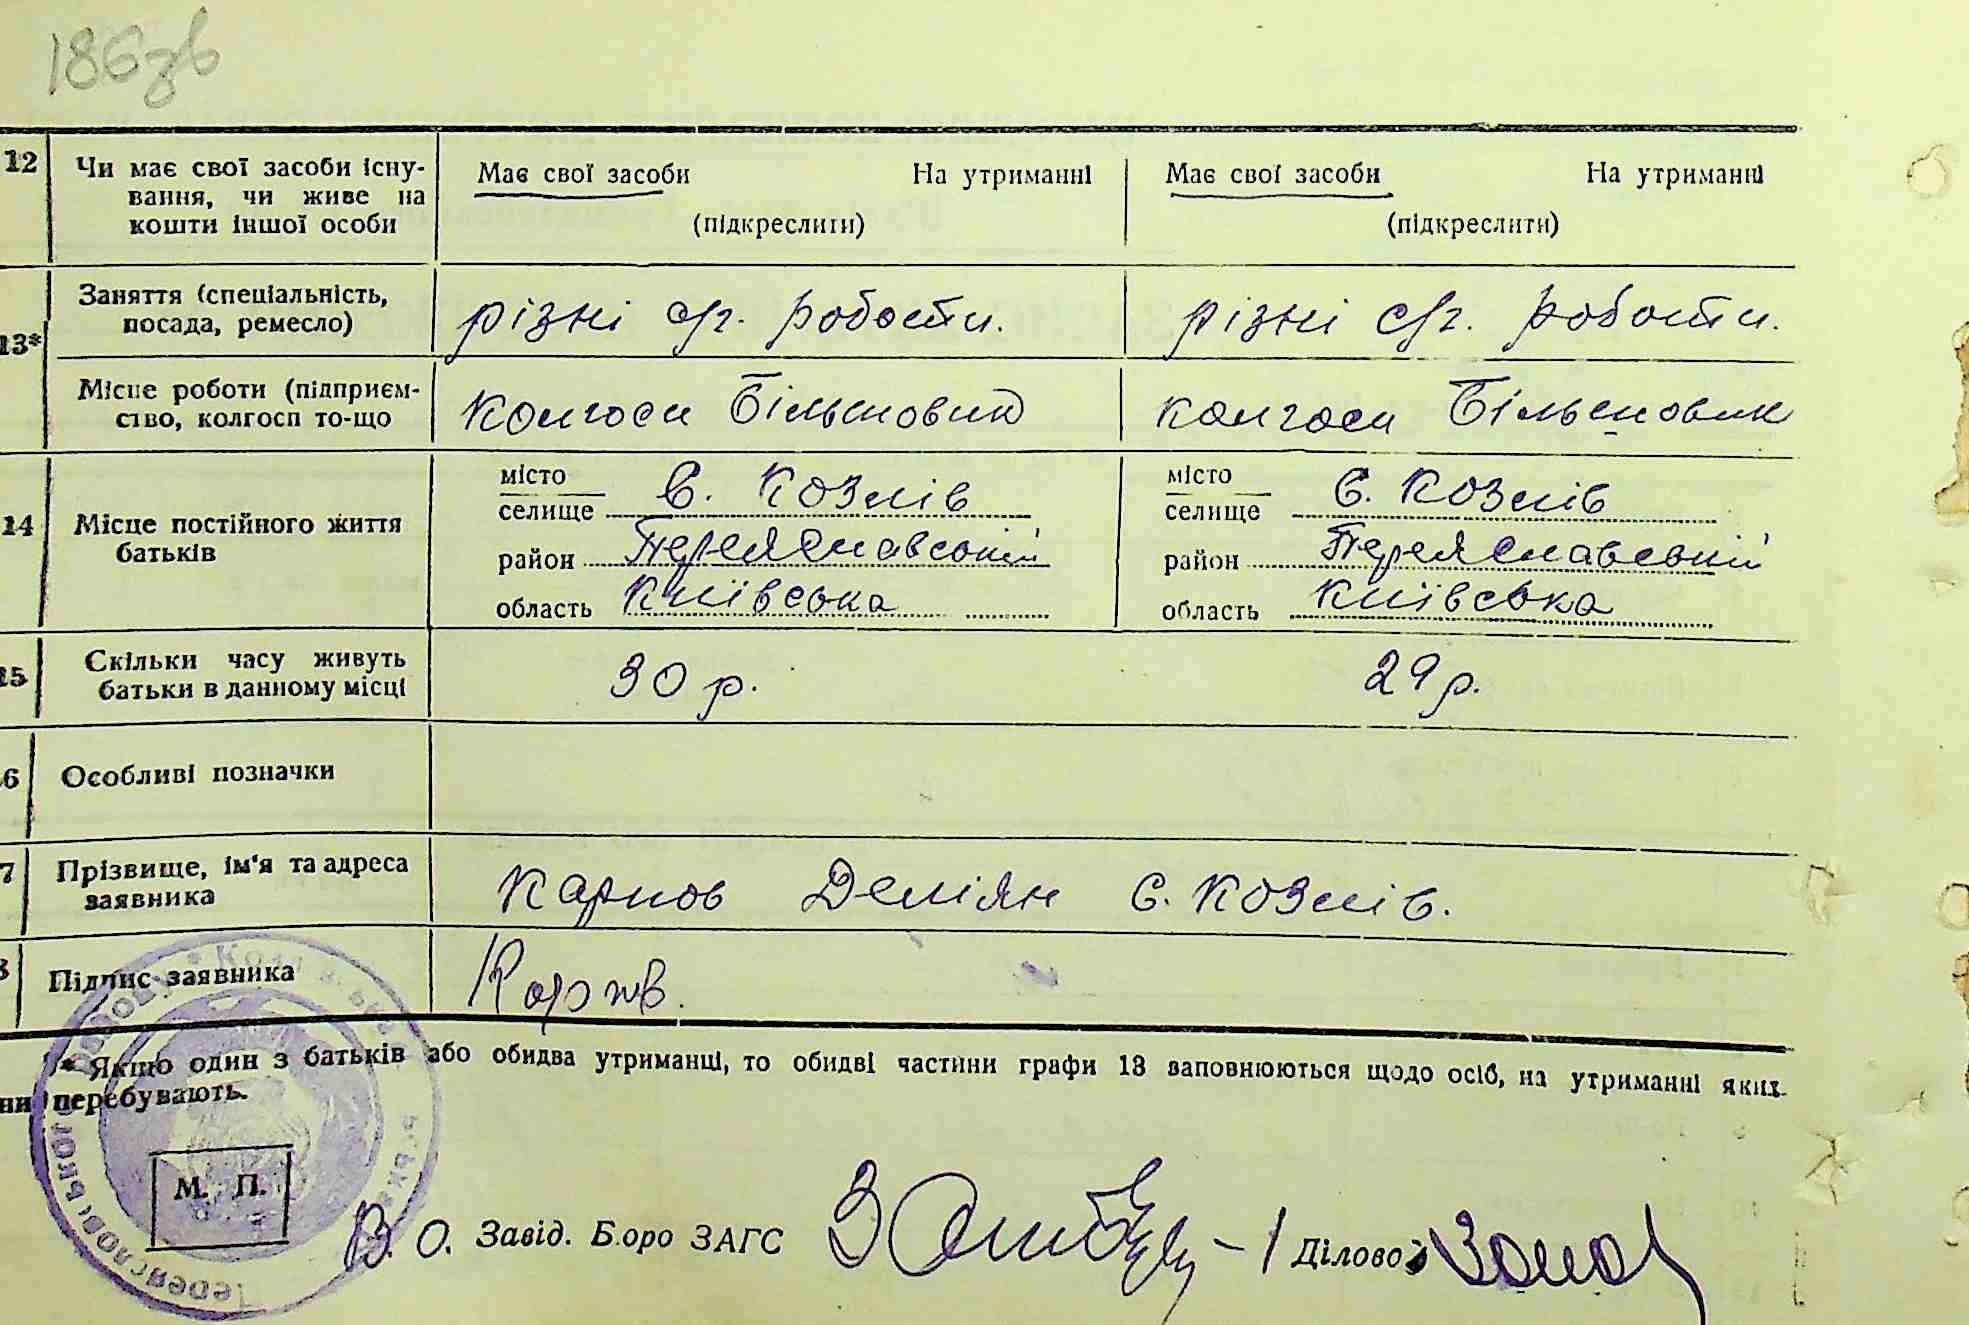 186зв
12 Чи має свої засоби існу- Має свої засоби На утриманні Має свої засоби На утриманні
вання, чи живе на
кошти іншої особи (підкреслити) (підкреслити)
Заняття (спеціальність, різні с/г. роботи. різні с/г. роботи.
посада, ремесло)
13*
Місце роботи (підприєм- колгосп Більшовик колгосп Більшовик
ство, колгосп то-що
місто с. Козлів місто с. Козлів
селище селище
14 Місце постійного життя
батьків
район Переяславський район Переяславський
область Київська область Київська
15 Скільки часу живуть 30 р. 29 р.
батьки в данному місці
6 Особливі позначки
7 Прізвище, ім'я та адреса Карпов Деміян с. Козлів.
заявника
8 Підпис заявника
* Якщо один з батьків або обидва утриманці, то обидві частини графи 13 заповнюються щодо осіб, на утриманні яких
ни перебувають.
М. П.
В. О. Завід. Бюро ЗАГС Діловод